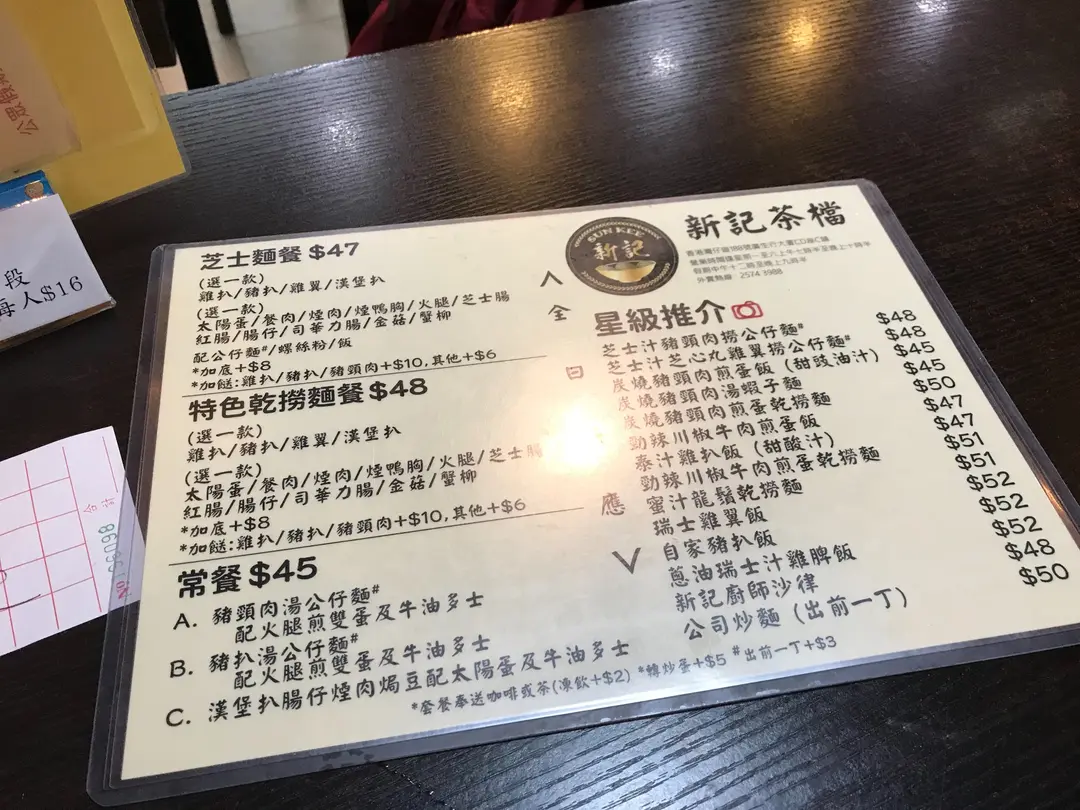 芝士麵餐 $47
(選一款)
雞扒/豬扒/雞翼/漢堡扒
(選一款)
太陽蛋/餐肉/煙肉/煙鴨胸/火腿/芝士腸
紅腸/腸仔/司華力腸/金菇/蟹柳
配公仔麵#/螺絲粉/飯
*加底+$8
*加餸:雞扒/豬扒/豬頸肉+$10,其他+$6
特色乾撈麵餐 $48
(選一款)
雞扒/豬扒/雞翼/漢堡扒
(選一款)
太陽蛋/餐肉/煙肉/煙鴨胸/火腿/芝士腸
紅腸/腸仔/司華力腸/金菇/蟹柳
*加底+$8
*加餸:雞扒/豬扒/豬頸肉+$10,其他+$6
常餐 $45
A. 豬頸肉湯公仔麵#
配火腿煎雙蛋及牛油多士
B. 豬扒湯公仔麵#
配火腿煎雙蛋及牛油多士
C. 漢堡扒腸仔煙肉焗豆配太陽蛋及牛油多士
*套餐奉送咖啡或茶(凍飲+$2) *轉炒蛋+$5 #出前一丁+$3
全
日
應
SUN KEE
新記
新記茶檔
香港灣仔道188號廣生行大廈CD座C舖
營業時間逢星期一至六上午七時半至晚上十時半
假期中午十二時至晚上九時半
外賣熱線 2574 3988
星級推介
芝士汁豬頸肉撈公仔麵# $48
芝士汁芝心丸雞翼撈公仔麵# $48
炭燒豬頸肉煎蛋飯 (甜豉油汁) $45
炭燒豬頸肉湯蝦子麵 $45
炭燒豬頸肉煎蛋乾撈麵 $50
勁辣川椒牛肉煎蛋飯 $47
泰汁雞扒飯 (甜酸汁) $47
勁辣川椒牛肉煎蛋乾撈麵 $51
蜜汁龍鬚乾撈麵 $51
瑞士雞翼飯 $52
自家豬扒飯 $52
蔥油瑞士汁雞脾飯 $52
新記廚師沙律 $48
公司炒麵 (出前一丁) $50
段
每人$16
合計